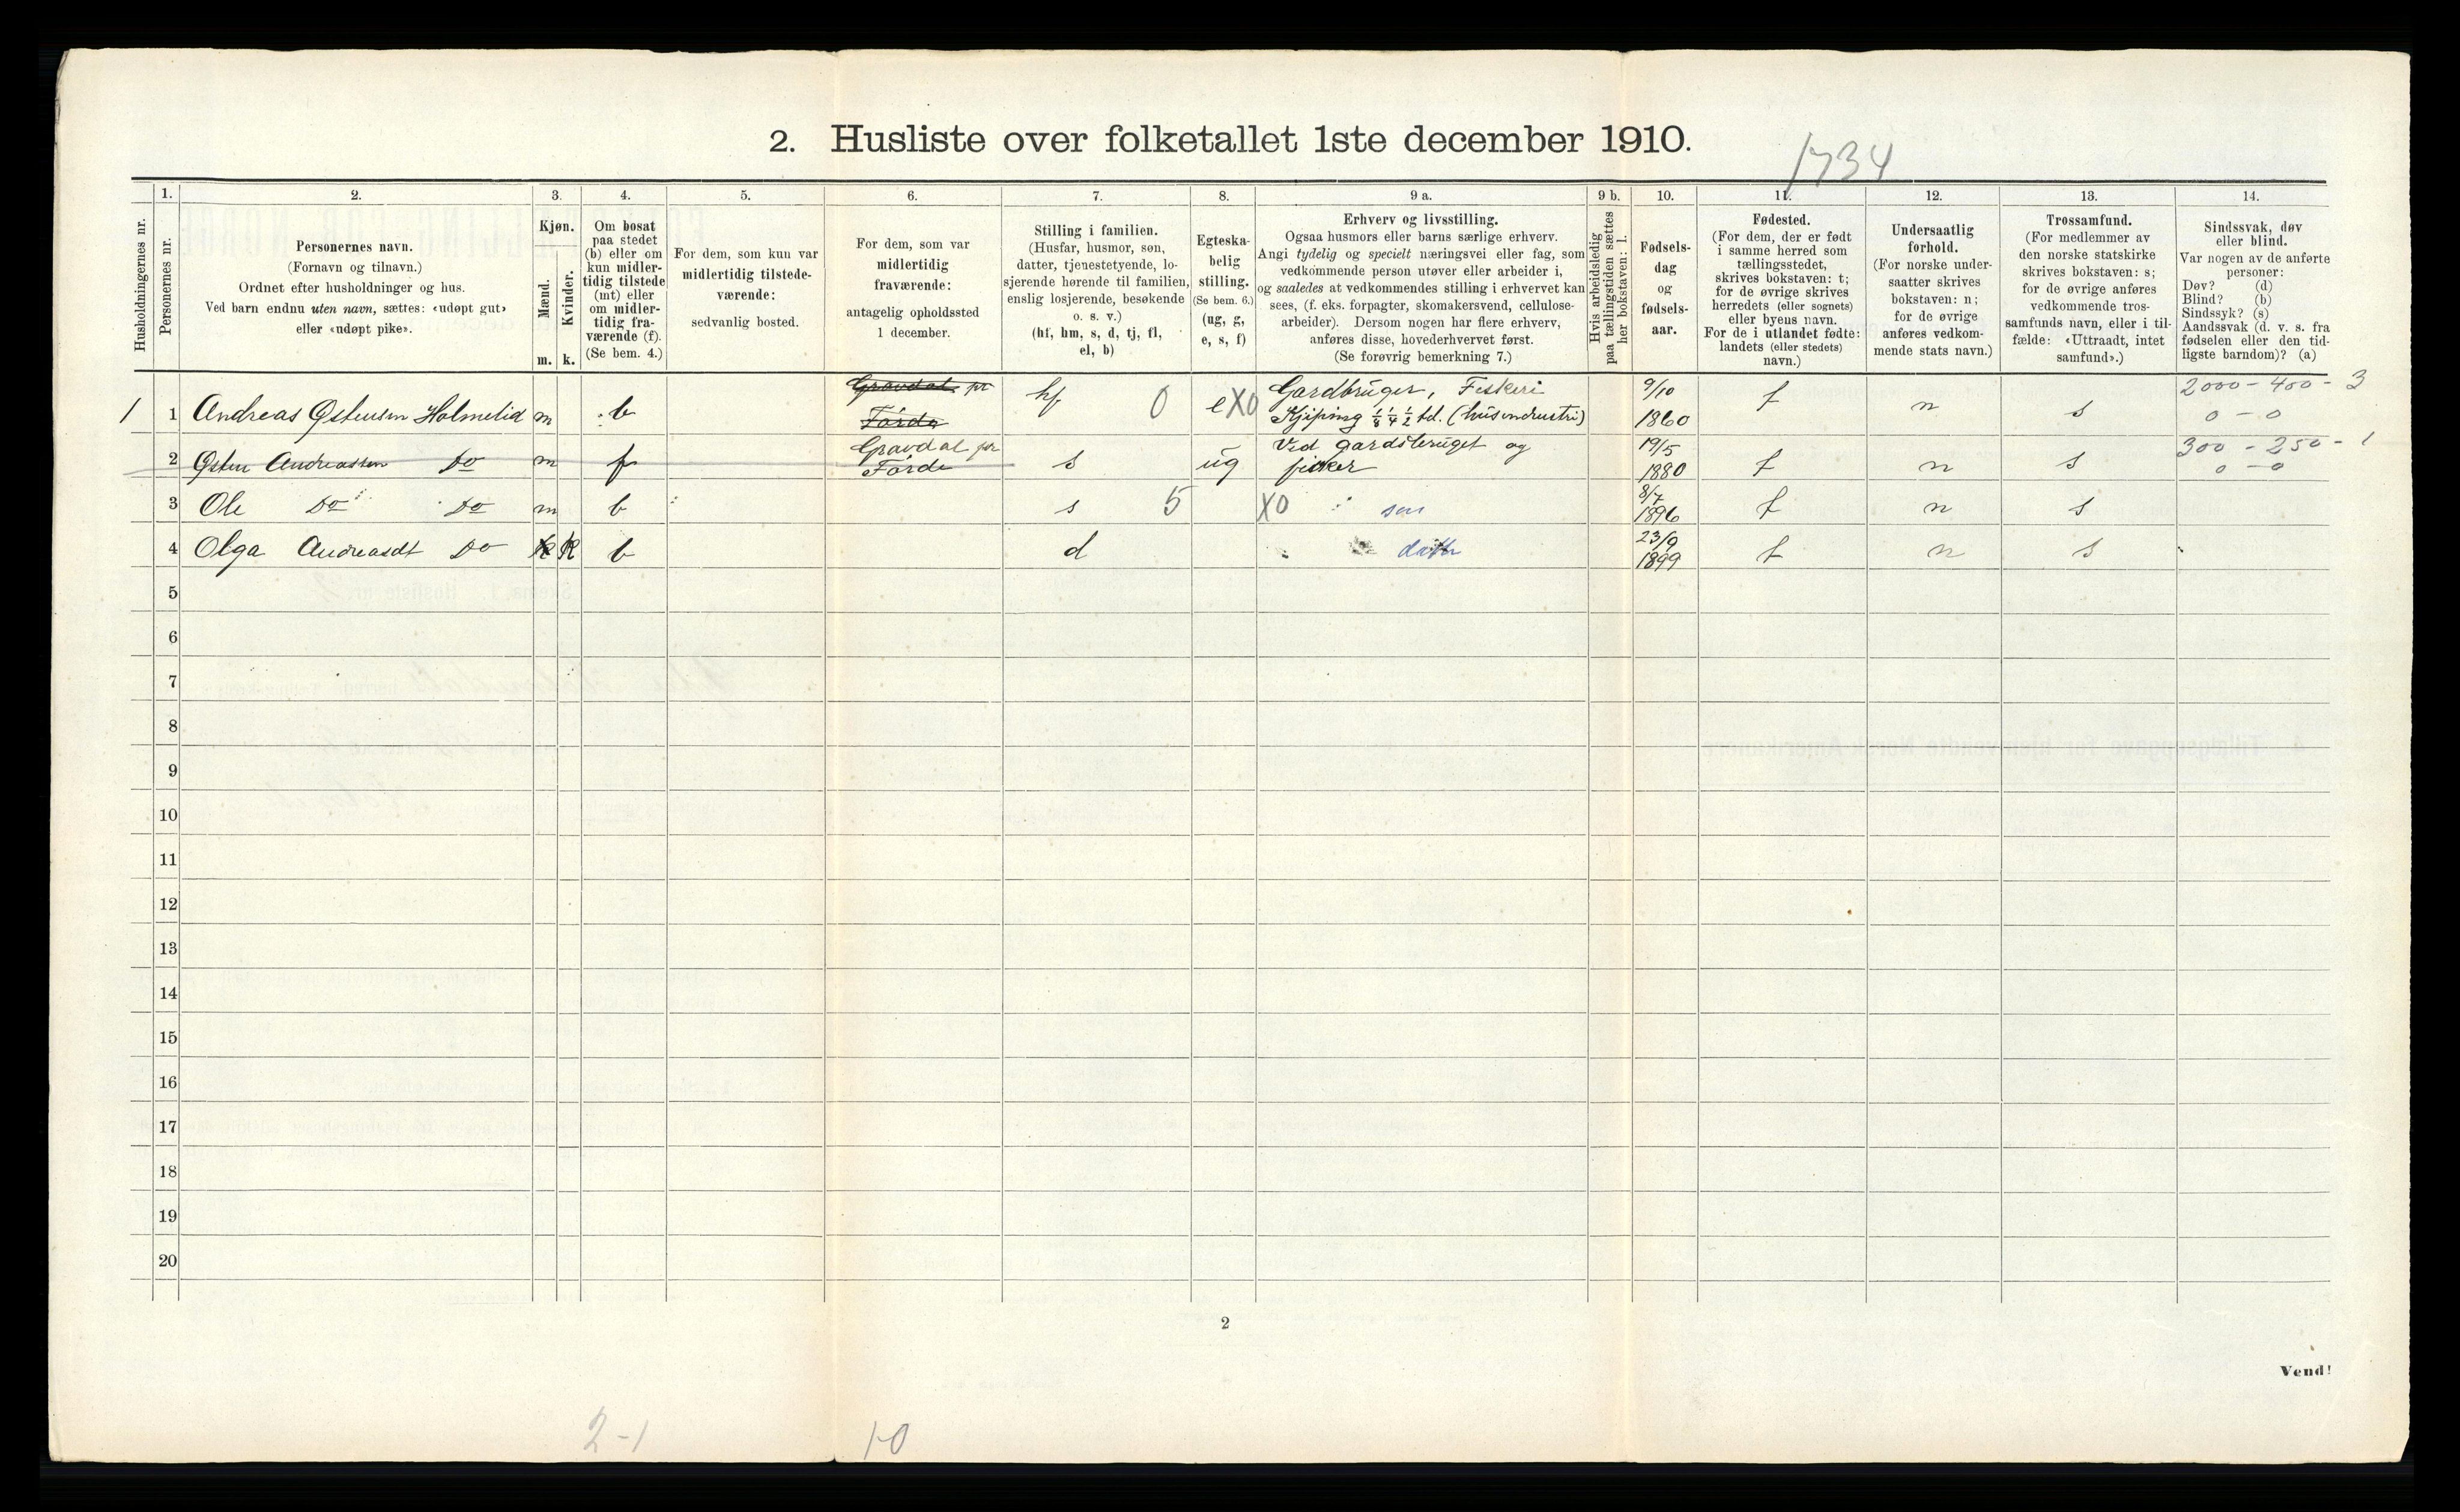 2. Husliste over folketallet 1ste december 1910.
1734
Husholdningernes nr.
1.
Personernes nr.
2.
Personernes navn.
(Fornavn og tilnavn.)
Ordnet efter husholdninger og hus.
Ved barn endnu uten navn, sættes: «udøpt gut»
eller «udøpt pike».
3.
Kjøn.
Mænd.
Kvinder.
m. k.
4.
Om bosat
paa stedet
(b) eller om
kun midler-
tidig tilstede
(mt) eller
om midler-
tidig fra-
værende (f).
(Se bem. 4.)
5.
For dem, som kun var
midlertidig tilstede-
værende:
sedvanlig bosted.
6.
For dem, som var
midlertidig
fraværende:
antagelig opholdssted
1 december.
7.
Stilling i familien.
(Husfar, husmor, søn,
datter, tjenestetyende, lo-
sjerende hørende til familien,
enslig losjerende, besøkende
o. s. v.)
(hf, hm, s, d, tj, fl,
el, b)
8.
Egteska-
belig
stilling.
(Se bem. 6.)
(ug, g,
e, s, f)
9 a.
Erhverv og livsstilling.
Ogsaa husmors eller barns særlige erhverv.
Angi tydelig og specielt næringsvei eller fag, som
vedkommende person utøver eller arbeider i,
og saaledes at vedkommendes stilling i erhvervet kan
sees, (f. eks. forpagter, skomakersvend, cellulose-
arbeider). Dersom nogen har flere erhverv,
anføres disse, hovederhvervet først.
(Se forøvrig bemerkning 7.)
9 b.
Hvis arbeidsledig
paa tællingstiden sættes
her bokstaven: l.
10.
Fødsels-
dag
og
fødsels-
aar.
11.
Fødested.
(For dem, der er født
i samme herred som
tællingsstedet,
skrives bokstaven: t;
for de øvrige skrives
herredets (eller sognets)
eller byens navn.
For de i utlandet fødte:
landets (eller stedets)
navn.)
12.
Undersaatlig
forhold.
(For norske under-
saatter skrives
bokstaven: n;
for de øvrige
anføres vedkom-
mende stats navn.)
13.
Trossamfund.
(For medlemmer av
den norske statskirke
skrives bokstaven: s;
for de øvrige anføres
vedkommende tros-
samfunds navn, eller i til-
fælde: «Uttraadt, intet
samfund».)
14.
Sindssvak, døv
eller blind.
Var nogen av de anførte
personer:
Døv? (d)
Blind? (b)
Sindssyk? (s)
Aandssvak (d. v. s. fra
fødselen eller den tid-
ligste barndom)? (a)
1 1 Andreas Østensen Holmelid m b Gravdal pr Førde hf 0 e X0 Gardbruger, Fiskeri 9/10 t n s 2000 - 400 - 3
Kjiping 1/8 1/4 1/2 td. (husindustri) 1860 0 - 0
2 Østen Andreassen Do m f Gravdal pr Førde s ug Ved gardsbruget og 19/5 t n s 300 - 250 - 1
fisker 1880 0 - 0
3 Ole Do Do m b s 5 X0 søn 8/7 1896 t n s
4 Olga Andreasdt Do k b d datter 23/9 1899 t n s
5
6
7
8
9
10
11
12
13
14
15
16
17
18
19
20
2
Vend!
2-1 1-0